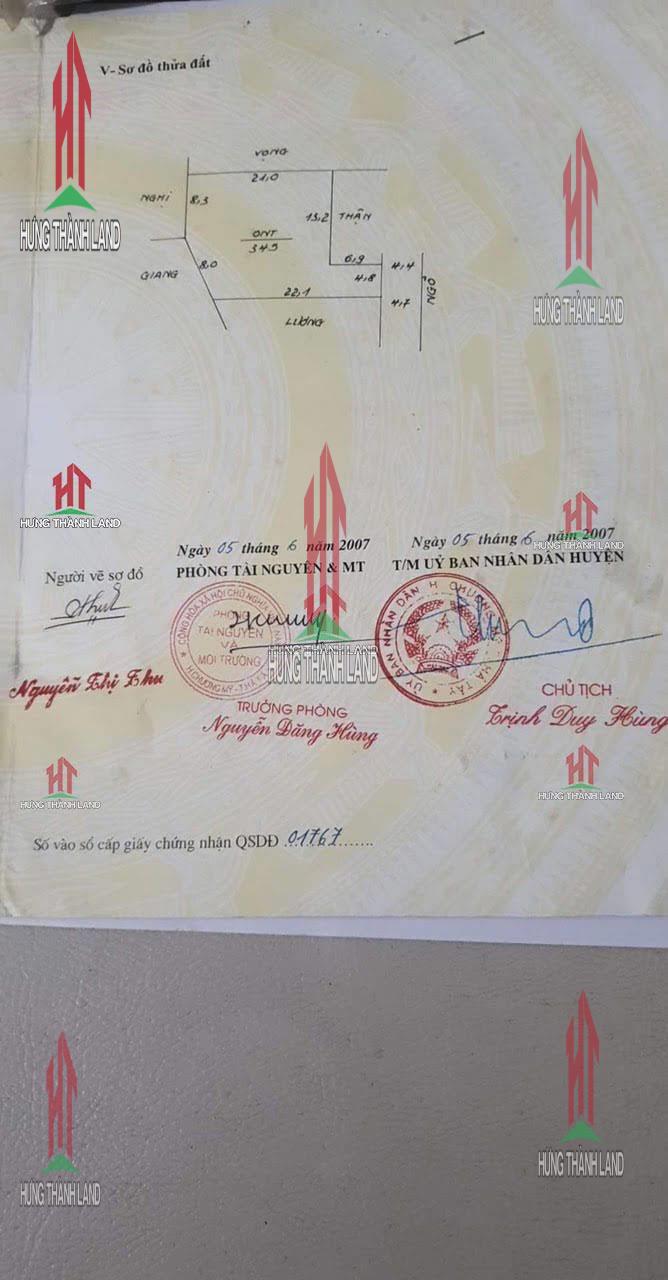 V- Sơ đồ thửa đất
HT
HƯNG THÀNH LAND
VỌNG
21,0
NGHỊ
8,3
13,2
THÂN
HT
HƯNG THÀNH LAND
ONT
345
GIANG
8,0
6,9
4,8
4,4
NGÕ
22,1
4,7
LƯƠNG
HT
HƯNG THÀNH LAND
HT
HƯNG THÀNH LAND
Ngày 05 tháng 6 năm 2007
Ngày 05 tháng 6 năm 2007
Người vẽ sơ đồ
PHÒNG TÀI NGUYÊN & MT
T/M UỶ BAN NHÂN DÂN HUYỆN
CỘNG HÒA XÃ HỘI CHỦ NGHĨA
PHÒNG
TÀI NGUYÊN
VÀ
MÔI TRƯỜNG
H.CHƯƠNG MỸ
ỦY BAN NHÂN DÂN H. CHƯƠNG
HÀ TÂY
HT
HƯNG THÀNH LAND
Nguyễn Thị Thu
TRƯỞNG PHÒNG
Nguyễn Đăng Hùng
CHỦ TỊCH
Trịnh Duy Hùng
HT
HƯNG THÀNH LAND
HT
HƯNG THÀNH LAND
Số vào sổ cấp giấy chứng nhận QSDĐ .01767.......
HT
HƯNG THÀNH LAND
HT
HƯNG THÀNH LAND